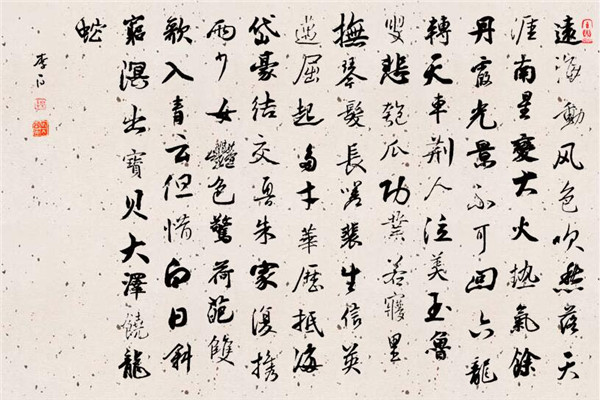 遠海動风色吹愁落天
涯南星變大火熱氣餘
丹霞光景不可回六龍
轉天車荆人泣美玉魯
叟悲匏瓜功業若夢里
撫琴髮長嗟裴生信英
邁屈起多才華歷抵海
岱豪結交魯朱家復携
两少女豔色驚荷葩雙
歌入青云但惜白日斜
窮溟出寶貝大澤饒龍
蛇
李白